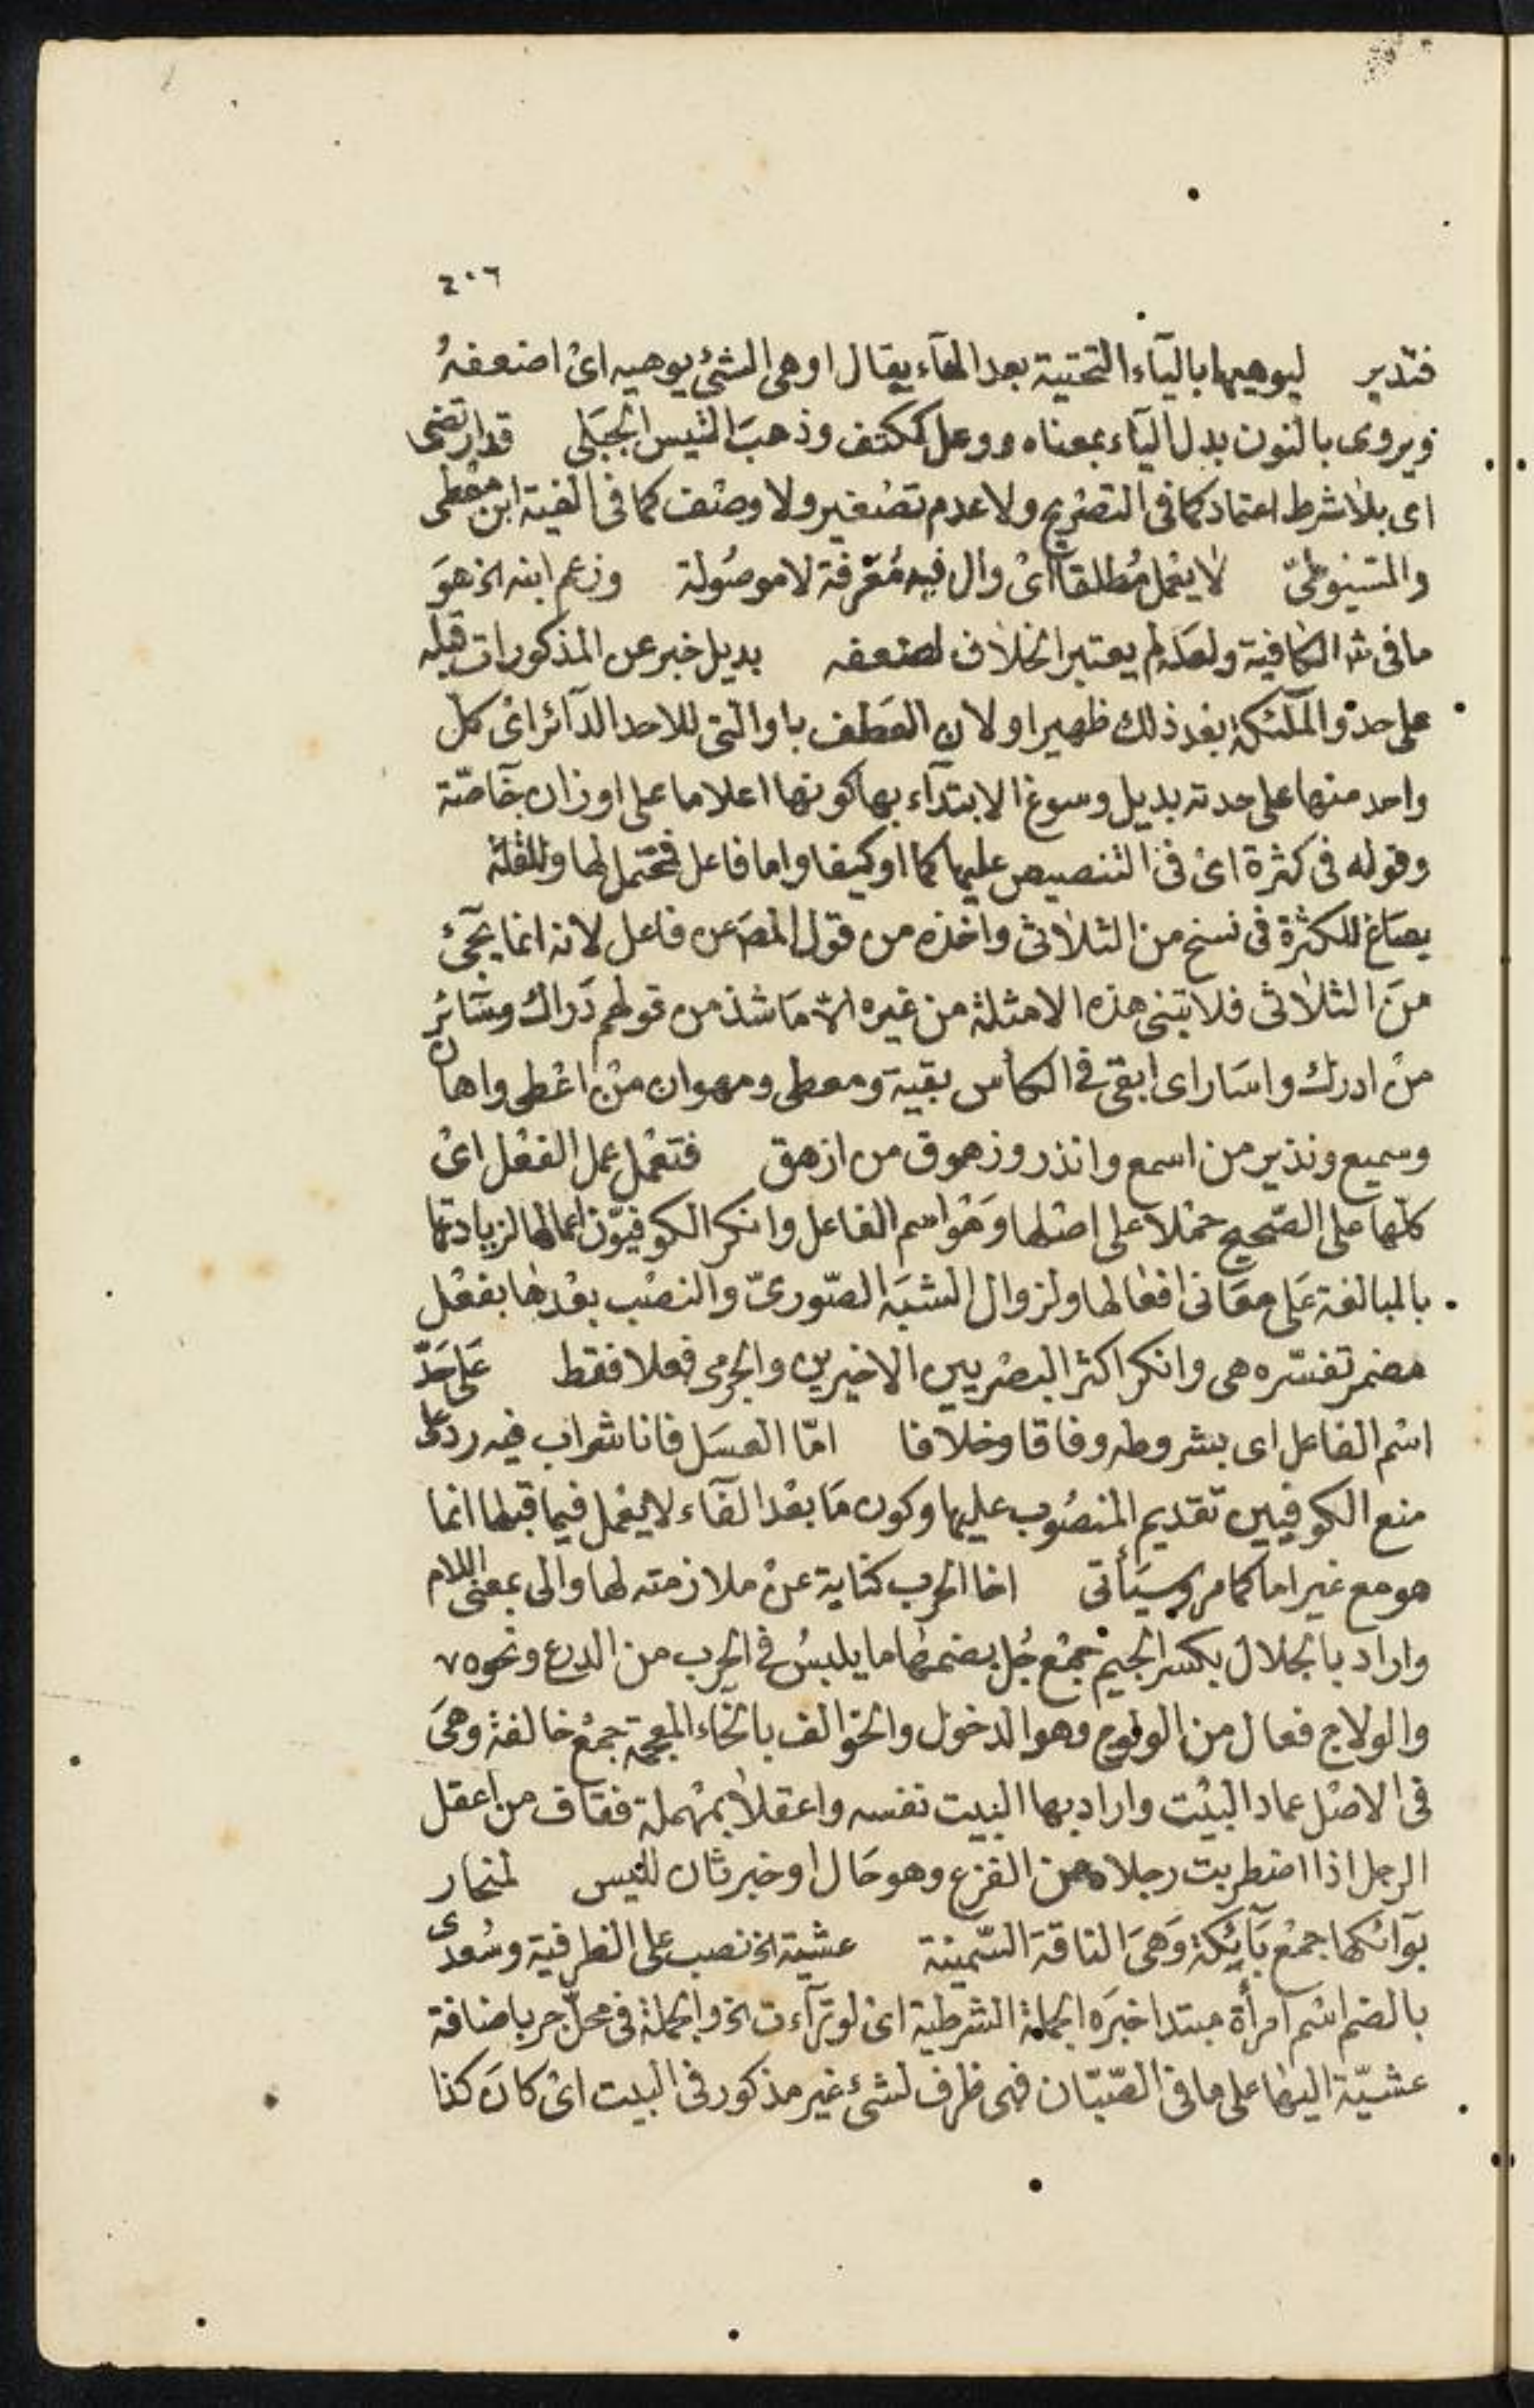 ٢٠٦
فتدبر ليوهيها بالياء التحتية بعد الهآء يقال اوهى الشئ يوهيه اى اضعفهُ
ويروى بالنون بدل اليآء بمعناه ووعل ككتف وذهبَ التيس الجبَلى قد ارتضى
اى بلا شرط اعتماد كما فى التصريح ولا عدم تصغير ولا وصف كما فى الفية ابن معطى
والسيوطىّ لا يعمل مُطلقا اىْ وال فيه مُعَرفة لا موصُولة وزعم ابنه الخ هوَ
ما فى شرح الكافية ولعله لم يعتبر الخلاف لضعفه بديل خبر عن المذكورات قبله
على حد والملٓئكة بعد ذلك ظهير او لان العَطف باو التى للاحد الدآئر اىْ كل
واحد منها على حدته بديل وسوغ الابتدآء بها كونها اعلاما على اوزان خآصّة
وقوله فى كثرة اىْ فى التنصيص عليها كما او كيفا واما فاعل فمحتمل لها وللقلة
يصَاغ للكثرة فى نسخ من الثلاثى واخذه من قول المصَ عن فاعل لانه انما يجئ
منَ الثلاثى فلا تبنى هذه الامثلة من غيره الا مَا شذ من قولهم دَراك وسَآئر
منْ ادرك واسَار اى ابقى فى الكاس بقية ومعطى ومهوان منْ اعْطى واهان
وسميع ونذير من اسمع وانذر وزهوق من ازهق فتعْمل عمل الفعْل اىْ
كلّها على الصّحيح حمْلا على اصْلها وَهْوَ اسم الفاعل وانكر الكوفيّون اعمالها لزيادتها
بالمبالغة عَلى معَانى افعالها ولزوال الشبَه الصّورىّ والنصْب بعْدها بفعْل
مضمر تفسّره هى وانكر اكثر البصْريين الاخيرين والجرمى فعلا فقط عَلى حَدّ
اسْم الفاعل اى بشروطه وفاقا وخلافا امّا العسَل فانا شراب فيه رد على
منع الكوفيين تقديم المنصُوب عليها وكون مَا بعْد الفآء لا يعْمل فيما قبلها انما
هو مع غير اما كما مر وسيَأتى اخا الحرب كناية عنْ ملازمته لها والى بمعنى اللام
واراد بالجلال بكسر الجيم جمْع جُل بضمها ما يلبسُ فى الحرب من الدرع ونحوه
والولاج فعال من الولوج وهو الدخول والخوالف بالخاء المعجمة جمْع خالفة وهىَ
فى الاصْل عماد البيْت واراد بها البيت نفسه واعقلا بمهْملة فقاف من اعقل
الرجل اذا اضطربت رجلاه من الفزع وهو حَال او خبر ثان لليس لمنحار
بَوآئكها جمْع بَآئكة وَهىَ الناقة السّمينة عشيّة الخ نصب على الظرفية وسُعدى
بالضم اسْم امرأة مبتدا خبَره الجملة الشرطية اىْ لو ترآءت الخ والجملة فى محلّ جر باضافة
عشيّة اليها على ما فى الصّبّان فهى ظرف لشئ غير مذكور فى البيت اىْ كانَ كذا